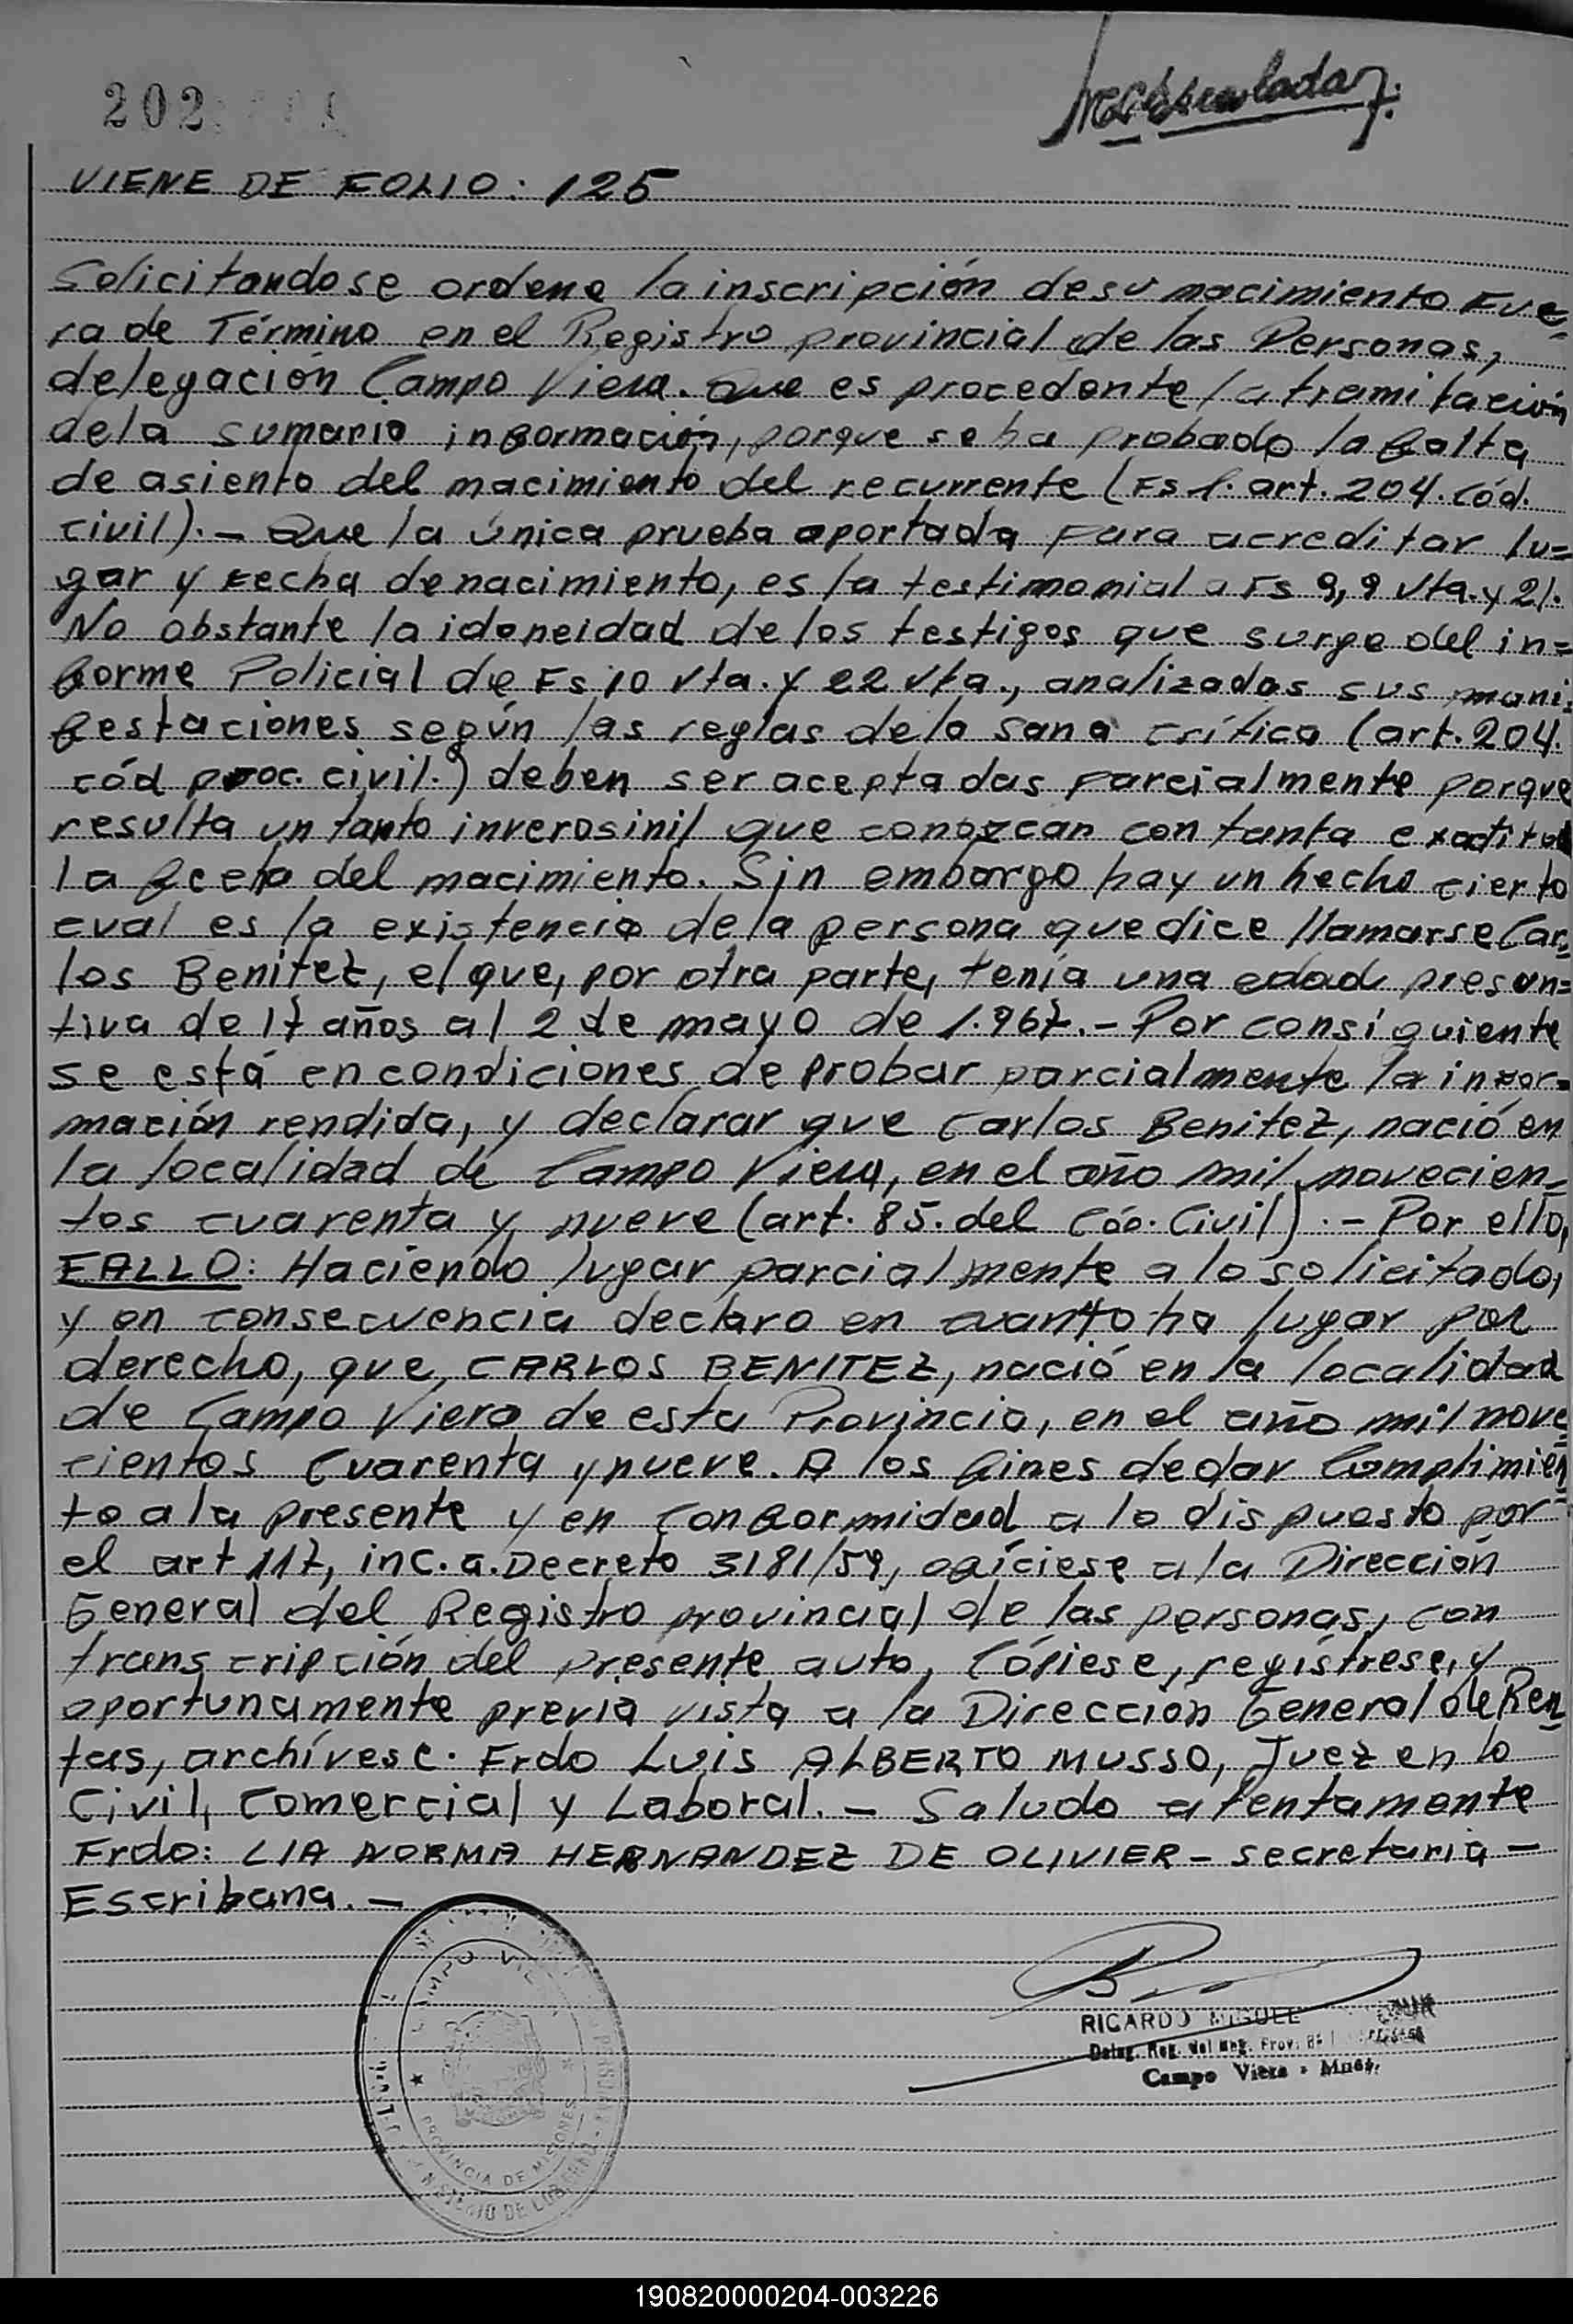 202
VIENE DE FOLIO: 125
Solicitandose ordene la inscripción de su nacimiento Fue=
ra de Término en el Registro provincial de las Personas,
delegación Campo Viera. Que es procedente la tramitación
de la sumario información, porque se ha probado la falta
de asiento del nacimiento del recurrente (Fs 1. art. 204. Cód.
civil).- Que la única prueba aportada para acreditar lu=
gar y Fecha de nacimiento, es la testimonial a Fs 9, 9 Vta. y 21.
No obstante la idoneidad de los testigos que surge del in=
forme Policial de Fs 10 Vta. y 22 Vta., analizadas sus mani=
festaciones según las reglas de la sana crítica (art. 204.
cód proc. civil.) deben ser aceptadas parcialmente porque
resulta un tanto inverosinil que conozcan con tanta exactitud
la feceha del nacimiento. Sin embargo hay un hecho cierto
cual es la existencia de la persona que dice llamarse Car=
los Benitez, el que, por otra parte, tenía una edad presun=
tiva de 17 años al 2 de mayo de 1.967.- Por consiguiente
se está en condiciones de probar parcialmente la infor=
mación rendida, y declarar que Carlos Benitez, nació en
la localidad de Campo Viera, en el año mil novecien=
tos cuarenta y nueve (art. 85. del Cód. Civil).- Por ello,
FALLO: Haciendo lugar parcialmente a lo solicitado,
y en consecuencia declaro en cuanto ha lugar por
derecho, que, CARLOS BENITEZ, nació en la localidad
de Campo Viera de esta Provincia, en el año mil nove=
cientos Cuarenta y nueve. A los fines de dar Cumplimien=
to a la presente y en conformidad a lo dispuesto por
el art 117, inc. a. Decreto 3181/59, ofíciese a la Dirección
General del Registro provincial de las personas, con
transcripción del presente auto, Cópiese, regístrese, y
oportunamente previa vista a la Dirección General de Ren=
tas, archívese. Frdo LUIS ALBERTO MUSSO, Juez en lo
Civil, Comercial y Laboral.- Saludo atentamente
Frdo: LIA NORMA HERNANDEZ DE OLIVIER - secretaria -
Escribana.-
CAMPO
PROVINCIA DE MISIONES
RICARDO MIGUEL
Deleg. Reg. del Reg. Prov.
Campo Viera - Mnes.
190820000204-003226